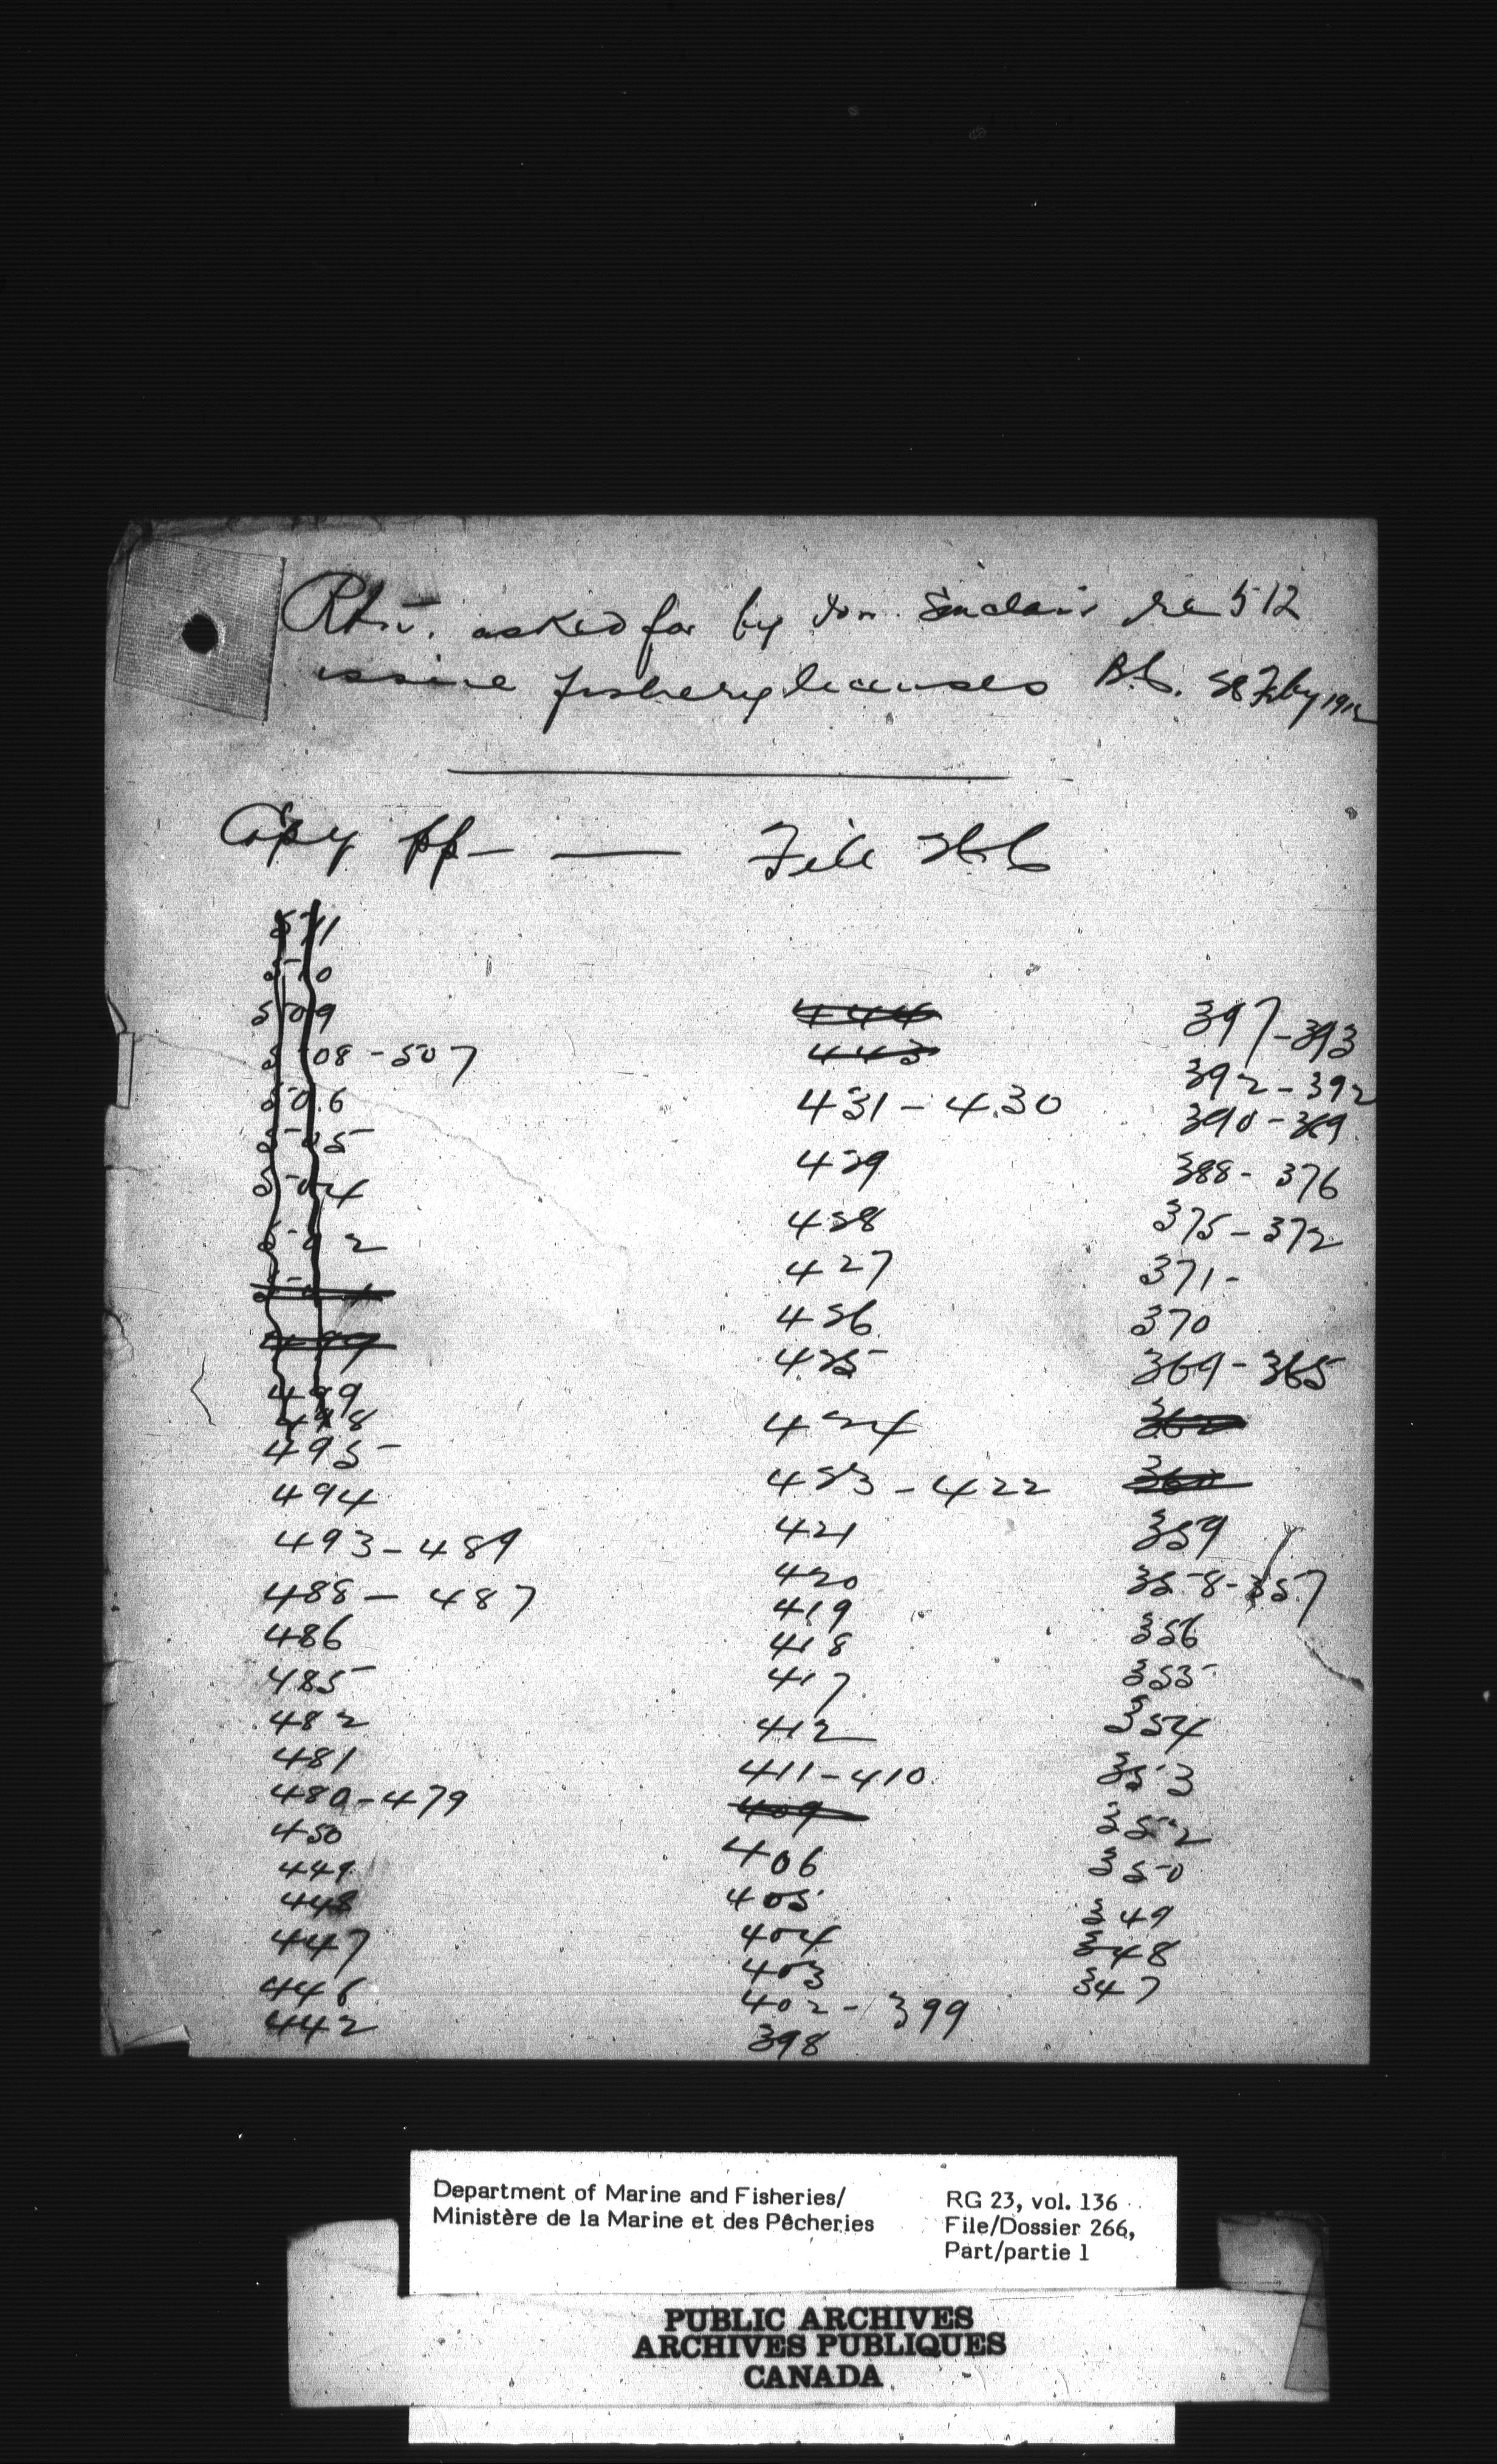 Rtn. asked for by Hon. Sinclair re 512
issue fishery licenses B.C. 28 Feby 1912
Copy pp — File 266
511
510
509
508-507
506
505
504
502
499
498
495
494
493-489
488-487
486
485
482
481
480-479
450
449
448
447
446
442
444
443
431-430
429
428
427
426
425
424
423-422
421
420
419
418
417
412
411-410
409
406
405
404
403
402-399
398
397-393
392-392
390-389
388-376
375-372
371-
370
369-365
360
359
358-357
356
355
354
353
352
350
349
348
347
Department of Marine and Fisheries/
Ministère de la Marine et des Pêcheries
RG 23, vol. 136
File/Dossier 266,
Part/partie 1
PUBLIC ARCHIVES
ARCHIVES PUBLIQUES
CANADA